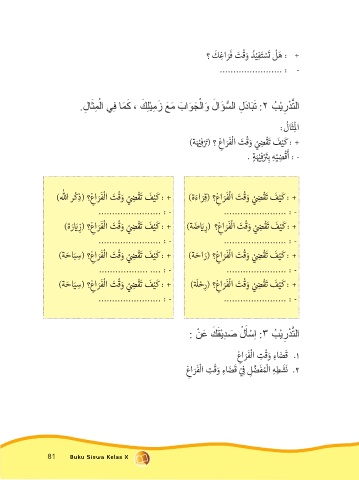 + : هَلْ تَسْتَفِيْدُ وَقْتَ فَرَاغِكَ ؟
- : .......................
التَّدْرِيْبُ ٢: تَبَادَلِ السُّؤَالَ وَالْجَوَابَ مَعَ زَمِيْلِكَ ، كَمَا فِي الْمِثَالِ.
الْمِثَالُ:
+ : كَيْفَ تَقْضِيْ وَقْتَ الْفَرَاغِ ؟ (تَرْفِيْهَة)
- : أَقْضِيْهِ بِتَرْفِيْهَةٍ .
+ : كَيْفَ تَقْضِيْ وَقْتَ الْفَرَاغِ؟ (قِرَاءَة)
- : .......................
+ : كَيْفَ تَقْضِيْ وَقْتَ الْفَرَاغِ؟ (رِيَاضَة)
- : .......................
+ : كَيْفَ تَقْضِيْ وَقْتَ الْفَرَاغِ؟ (رَاحَة)
- : .......................
+ : كَيْفَ تَقْضِيْ وَقْتَ الْفَرَاغِ؟ (رِحْلَة)
- : .......................
+ : كَيْفَ تَقْضِيْ وَقْتَ الْفَرَاغِ؟ (ذِكْرِ الله)
- : .......................
+ : كَيْفَ تَقْضِيْ وَقْتَ الْفَرَاغِ؟ (زِيَارَة)
- : .......................
+ : كَيْفَ تَقْضِيْ وَقْتَ الْفَرَاغِ؟ (سِيَاحَة)
- : .... ..................
+ : كَيْفَ تَقْضِيْ وَقْتَ الْفَرَاغِ؟ (سِيَاحَة)
- : .......................
التَّدْرِيْبُ ٣: اِسْأَلْ صَدِيْقَكَ عَنْ :
١. قَضَاءِ وَقْتِ الْفَرَاغِ
٢. نَشَطِهِ الْمُفَضَّلِ فِيْ قَضَاءِ وَقْتِ الْفَرَاغِ
81 Buku Siswa Kelas X